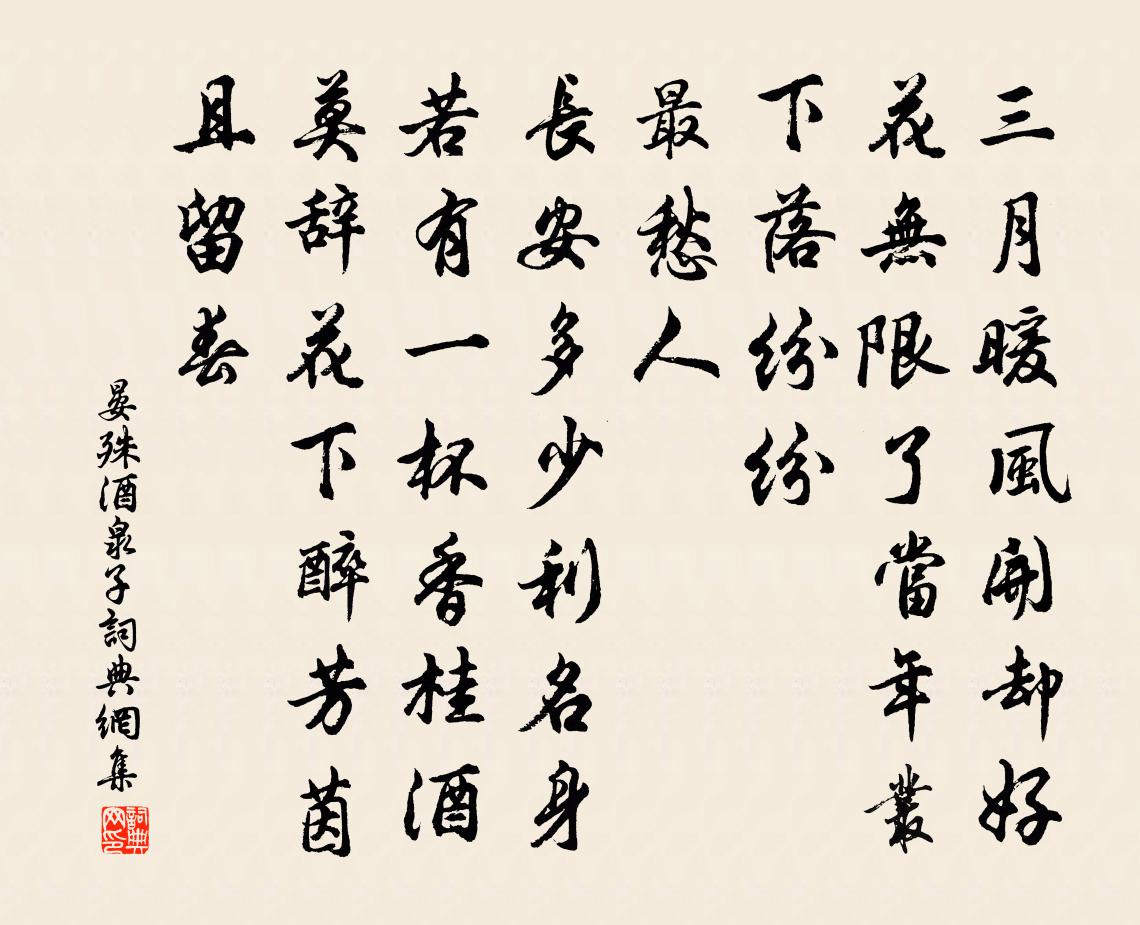 三月暖風開却好
花無限了當年叢
下落紛紛
最愁人
長安多少利名身
若有一杯香桂酒
莫辞花下醉芳茵
且留春
晏殊酒泉子詞典網集
詞典网印